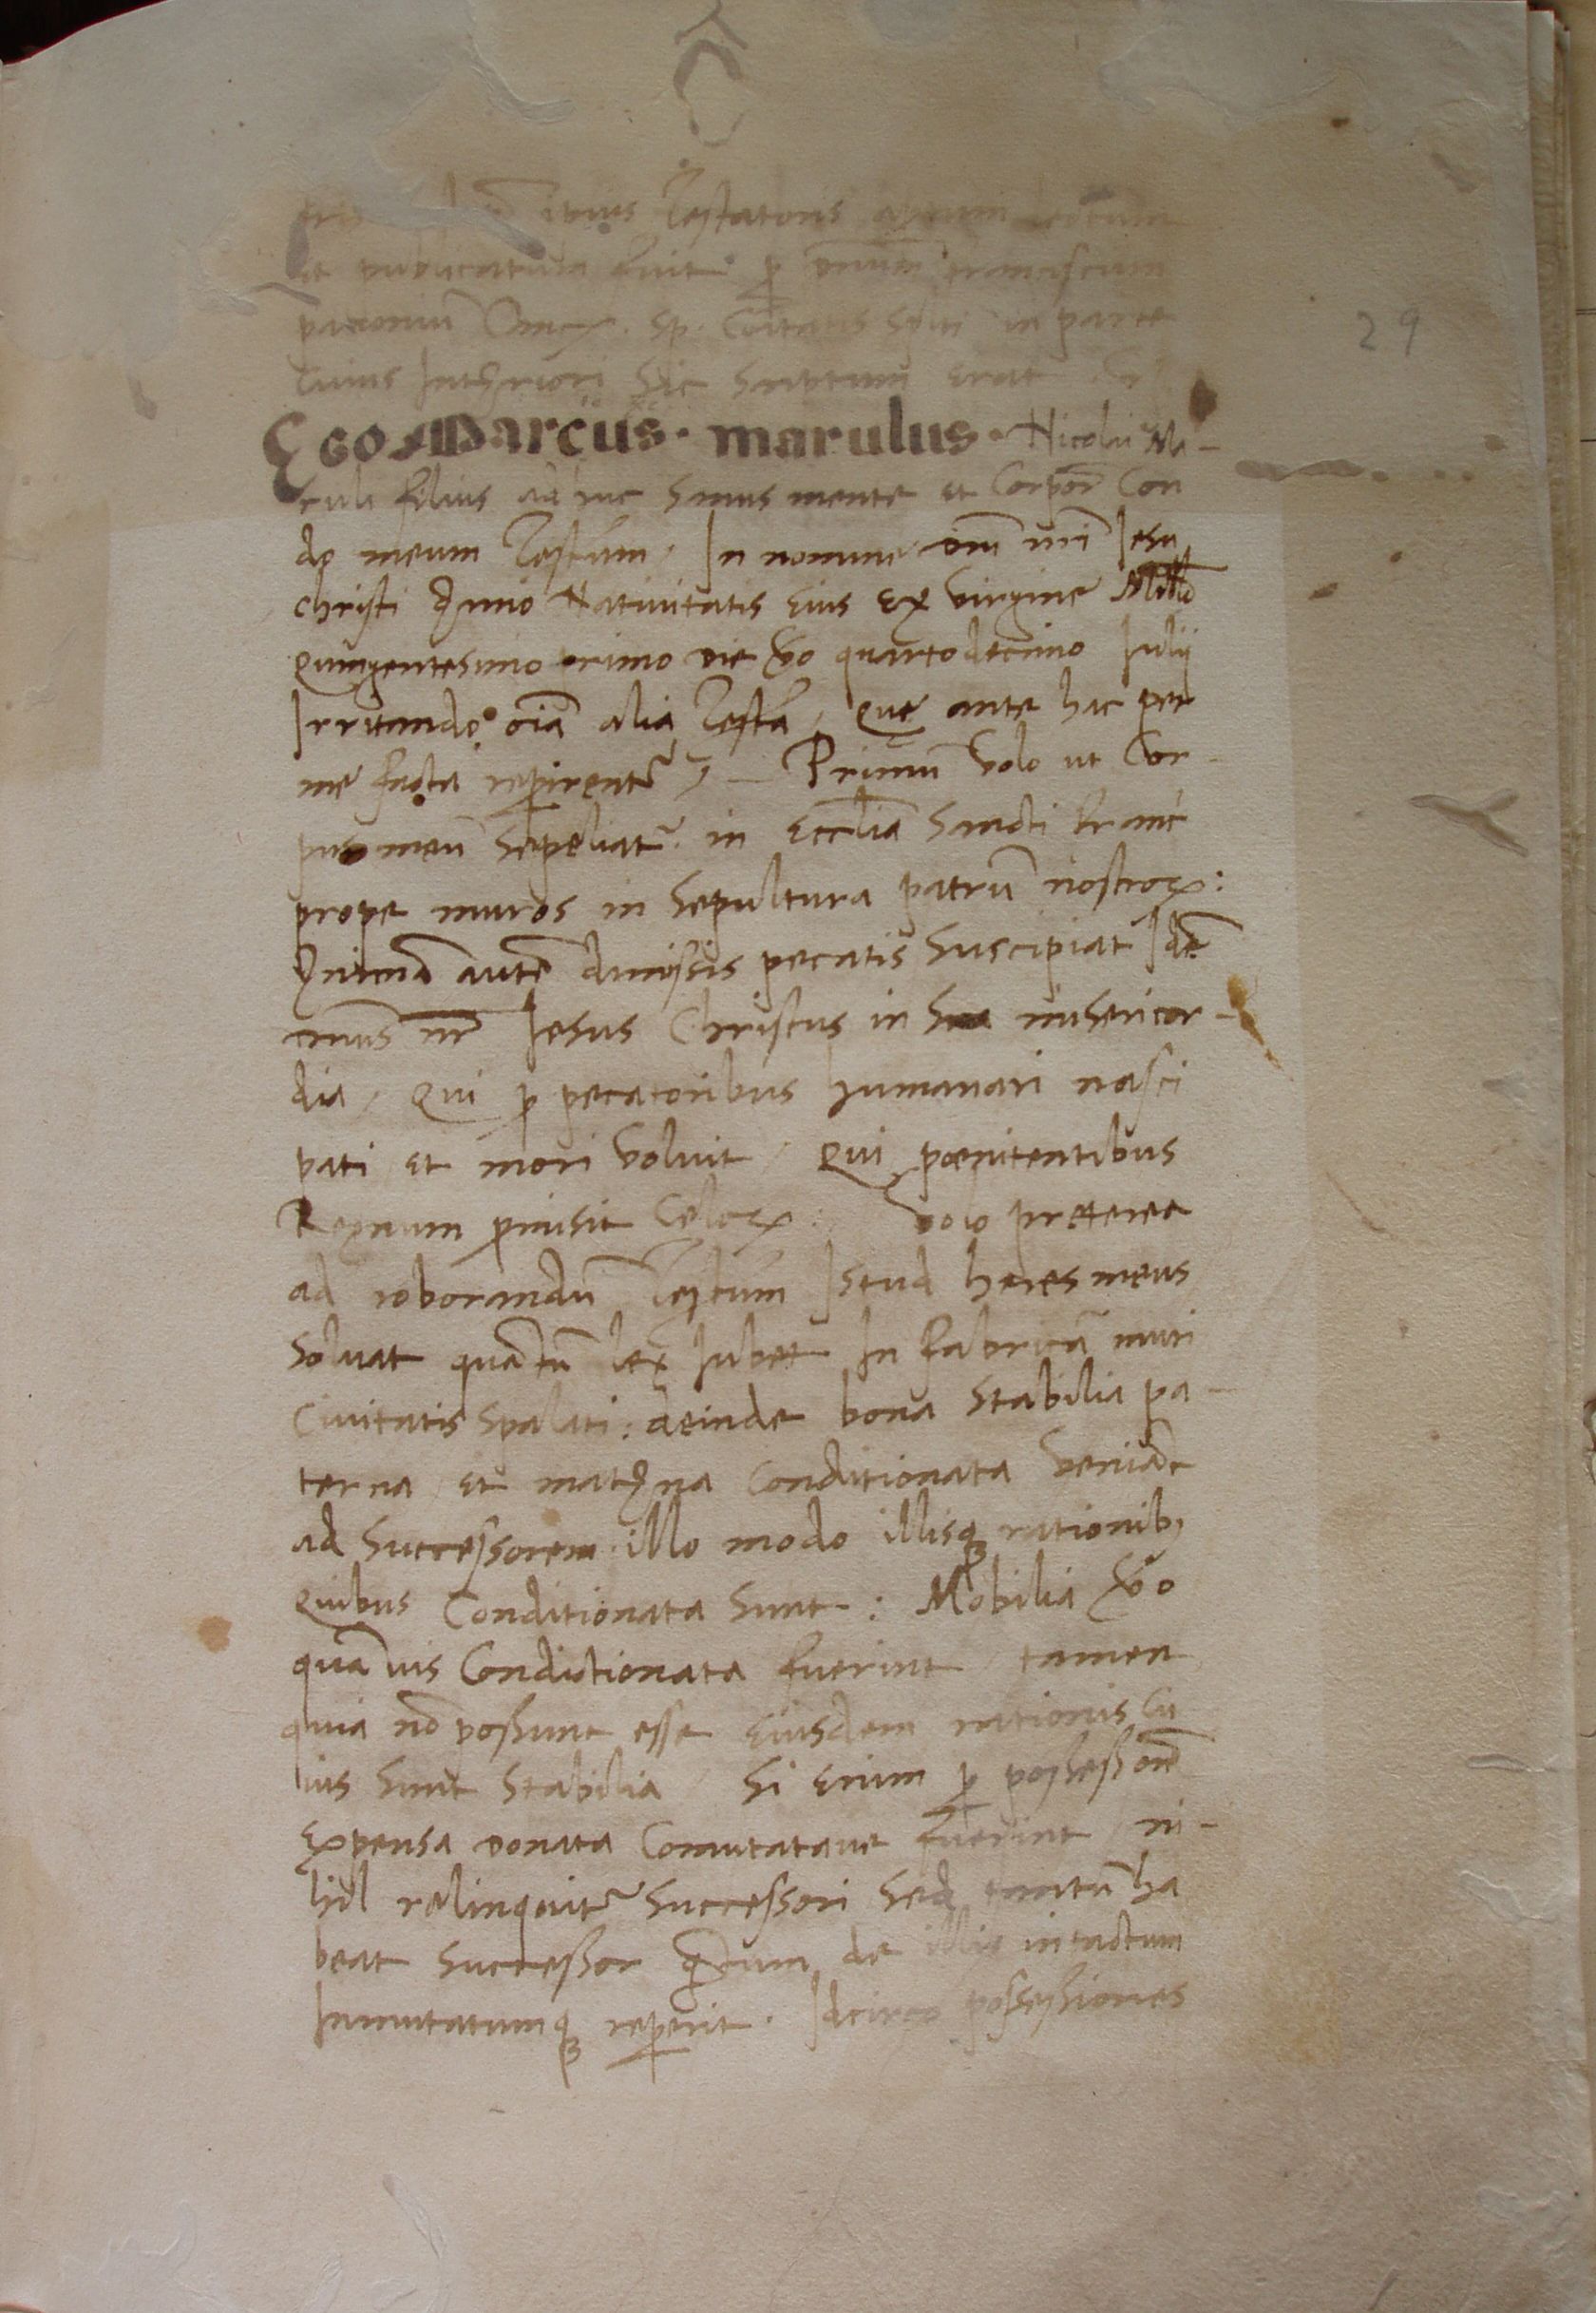 ipius Testatoris apertum lectum
et publicatum fuit p̱ Franciscum
Canc. Sp. Cōitatis Spleti in parte
Cuius Interiori sic scriptum erat
29
Ego Marcus. marulus. Nicolai Ma-
ruli filius adhuc Sanus mente et Corpor̄ Con
do meum Testm̄ / In nomine dn̄i nr̄i Iesu
christi Anno Natiuitatis Eius Ex virgine Mill̄o
Quingentesimo primo die v̄o quartodecimo Iulij
Irritando oīa alia Testā / Quę ante hac per
me facta reperirent᷑ / - Primū Volo ut Cor-
pus meū Sepeliat᷑ in Eccl̄ia Sancti Franc̄
prope muros in Sepultura patrū nostroꝝ:
Animā autē dimissis peccatis Suscipiat Idē
nr̄ Iesus Christus in Sua misericor-
dia / Qui p̱ peccatoribus humanari nasci
pati et mori Voluit / Qui pœnitentibus
Regnum p̱misit Cęloꝝ: Volo preterea
ad roborandū Testūm Istud heres meus
Soluat quantū lex Iubet In fabricā muri
Ciuitatis Spalati: deinde bona Stabilia pa-
terna / et materna Conditionata Veniāt
ad Successorem illo modo illisqꝫ rationibꝫ
Quibus Conditionata Sunt: Mobilia v̄o
quāuis Condictionata fuerint / tamen
quia nō possunt esse Eiusdem rationis Cu
ius Sunt Stabilia / Si Enim p̱ possessorē
Expensa donata Comutataue fuerint / ni-
hil relinquit᷑ Successori Sed tantū ha
beat Successor q̄tum de illis intactum
Inmutatumqꝫ reperit. Idcirco possessiones